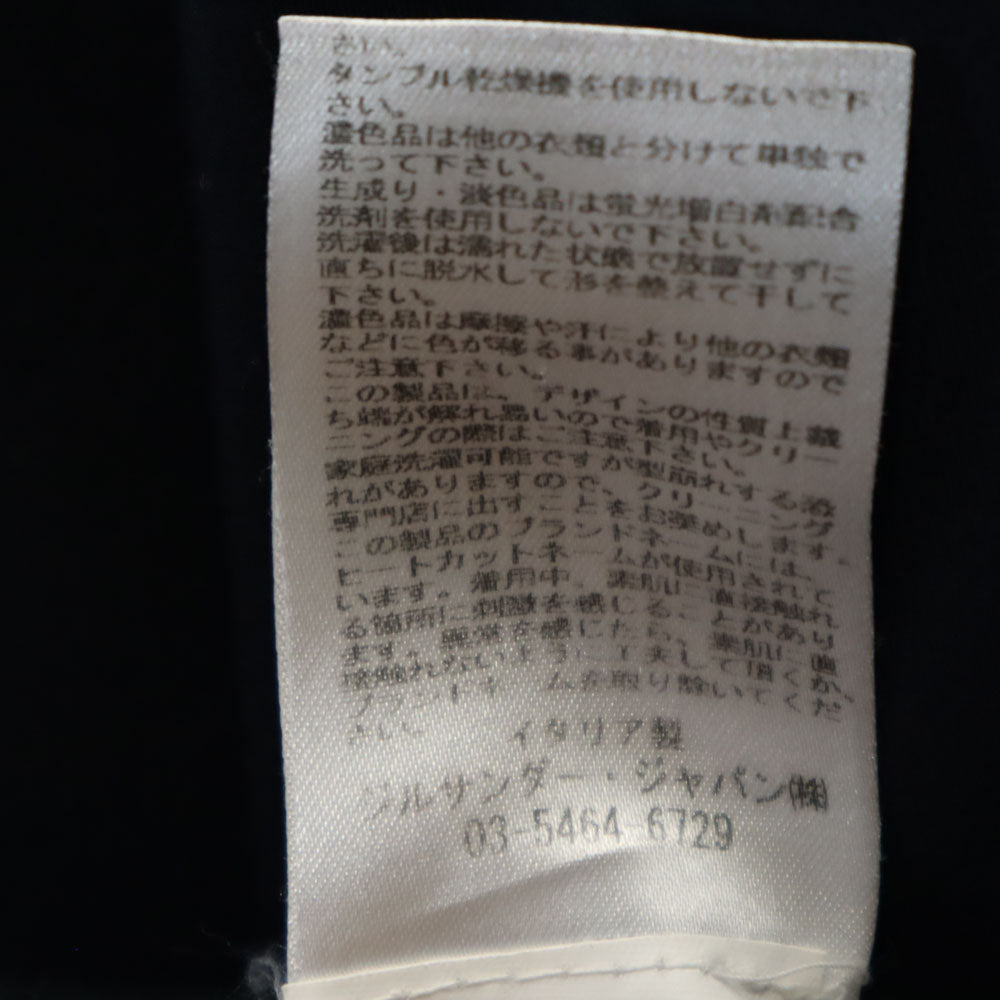 さい。
タンブル乾燥機を使用しないで下
さい。
濃色品は他の衣類と分けて単独で
洗って下さい。
生成り・淡色品は蛍光増白剤配合
洗剤を使用しないで下さい。
洗濯後は濡れた状態で放置せずに
直ちに脱水して形を整えて干して
下さい。
濃色品は摩擦や汗により他の衣類
などに色が移る事がありますので
ご注意下さい。
この製品は、デザインの性質上裁
ち端が解れ易いので着用やクリー
ニングの際はご注意下さい。
家庭洗濯可能ですが型崩れする恐
れがありますので、クリーニング
専門店に出すことをお薦めします。
この製品のブランドネームには、
ヒートカットネームが使用されて
います。着用中、素肌に直接触れ
る箇所に刺激を感じることがあり
ます。異常を感じたら、素肌に直
接触れないように工夫して頂くか、
ブランドネームを取り除いてくだ
さい。
イタリア製
ジルサンダー・ジャパン㈱
03-5464-6729